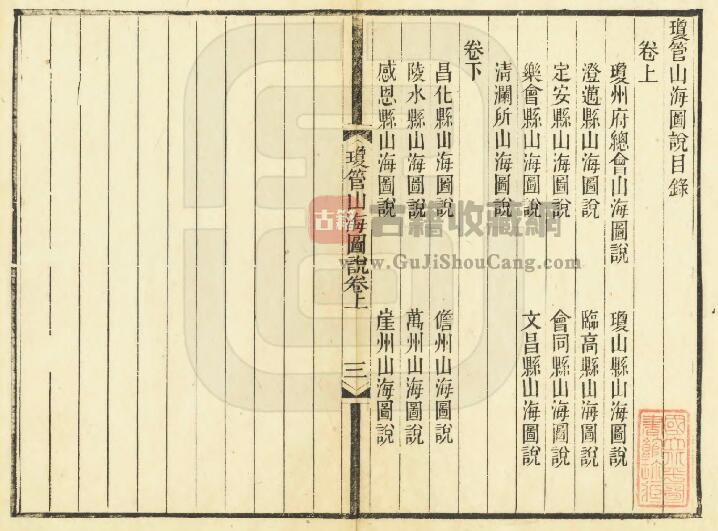 瓊管山海圖說目錄
卷上
瓊州府總會山海圖說 瓊山縣山海圖說
澄邁縣山海圖說 臨高縣山海圖說
定安縣山海圖說 會同縣山海圖說
樂會縣山海圖說 文昌縣山海圖說
清瀾所山海圖說
卷下
昌化縣山海圖說 儋州山海圖說
陵水縣山海圖說 萬州山海圖說
感恩縣山海圖說 崖州山海圖說
瓊管山海圖說卷上
三
古籍
古籍收藏網
www.GuJiShouCang.com